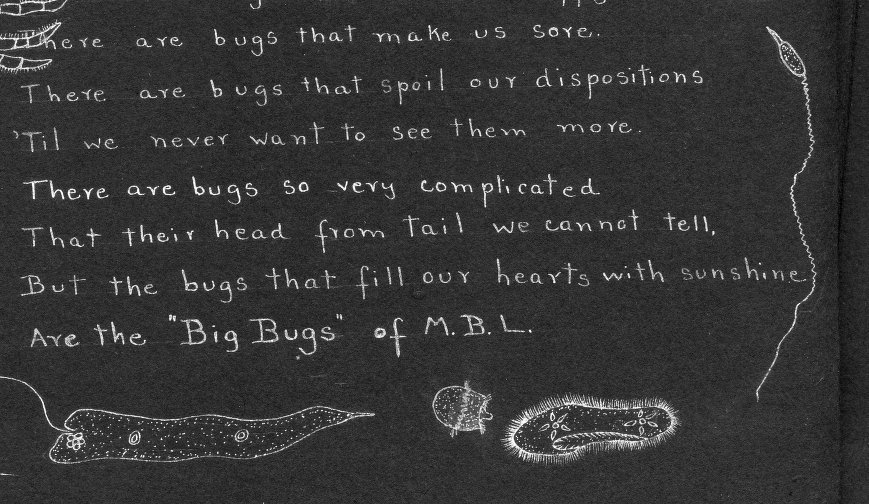 There are bugs that make us sore.
There are bugs that spoil our dispositions
'Til we never want to see them more.
There are bugs so very complicated
That their head from tail we cannot tell,
But the bugs that fill our hearts with sunshine
Are the "Big Bugs" of M.B.L.